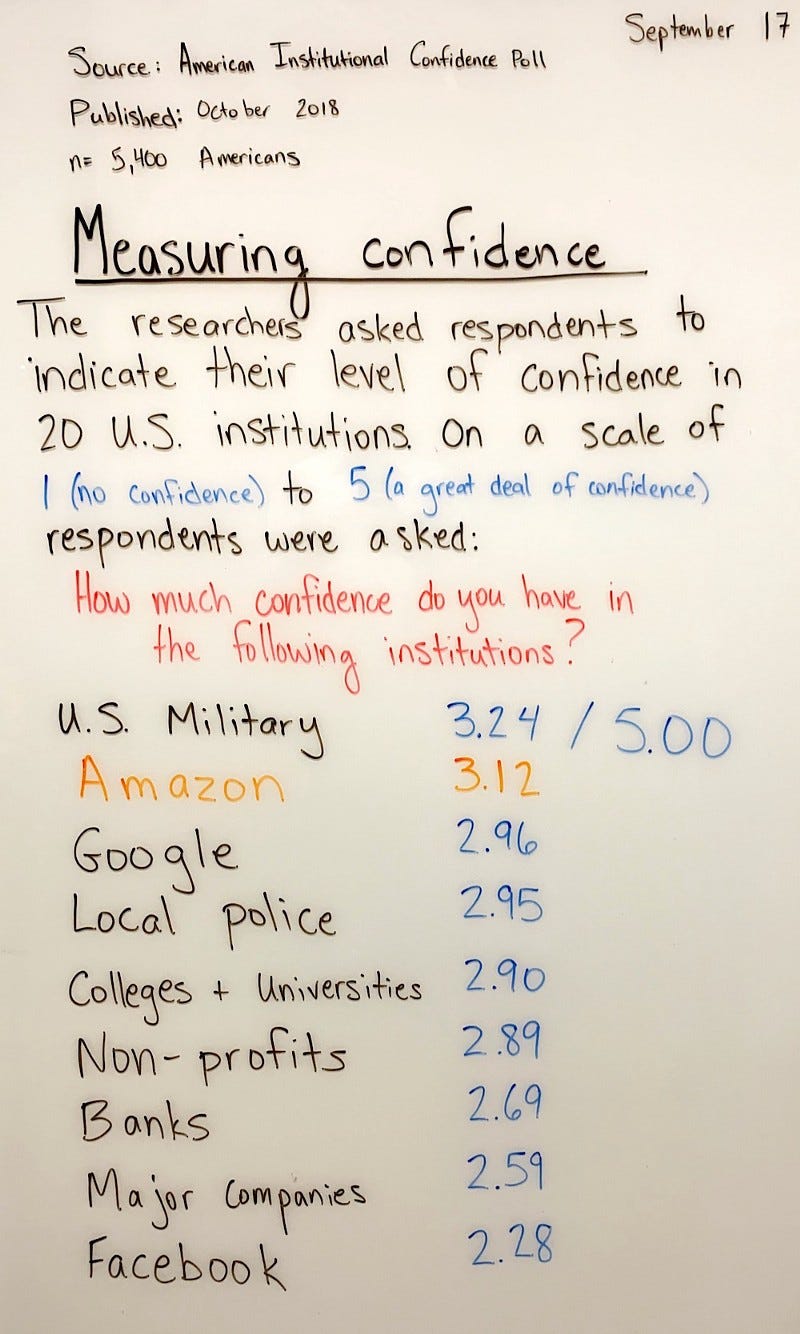 September 17
Source: American Institutional Confidence Poll
Published: October 2018
n= 5,400 Americans
Measuring confidence
The researchers asked respondents to
indicate their level of confidence in
20 U.S. institutions. On a scale of
1 (no confidence) to 5 (a great deal of confidence)
respondents were asked:
How much confidence do you have in
the following institutions?
U.S. Military 3.24 / 5.00
Amazon 3.12
Google 2.96
Local police 2.95
Colleges + Universities 2.90
Non-profits 2.89
Banks 2.69
Major Companies 2.59
Facebook 2.28